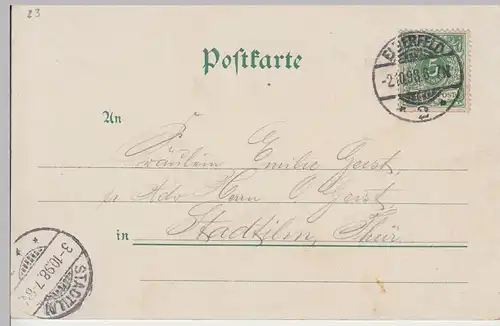 23
Postkarte
ELBERFELD
-2.10.98.6-7N.
* 2 *
5
An
Fräulein Emilie Geist,
p. Adr. Herrn O. Geist,
in Stadtilm, Thür.
STADTILM
3-10.98.7-8